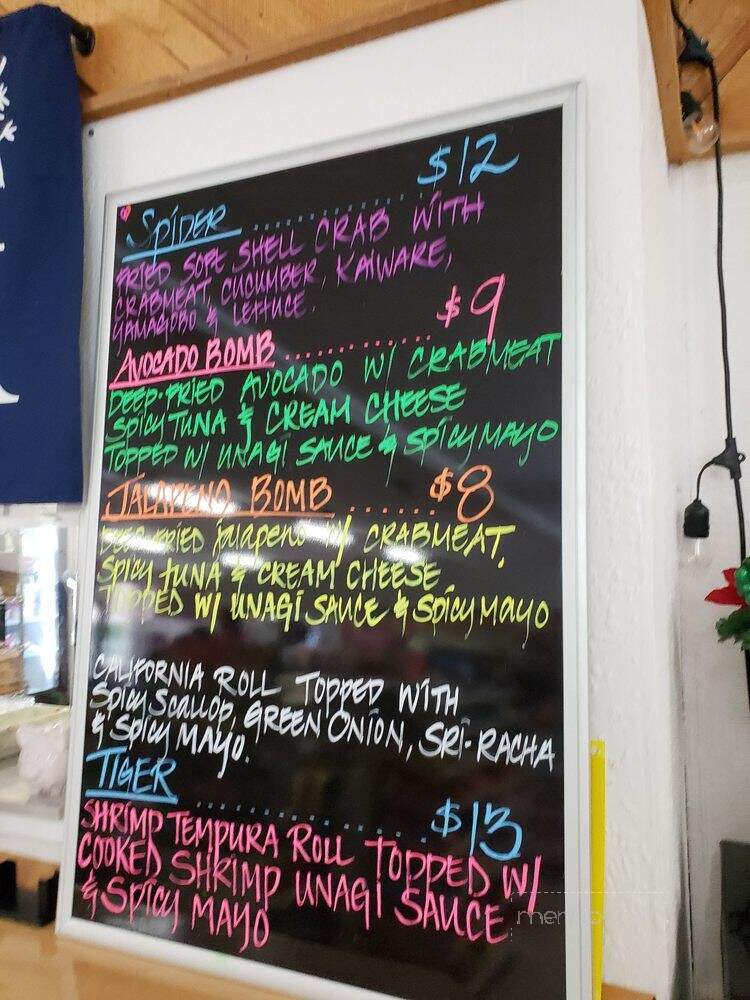 SPIDER ........... $12
FRIED SOFT SHELL CRAB WITH
CRABMEAT, CUCUMBER, KAIWARE,
YAMAGOBO & LETTUCE.
AVOCADO BOMB ........... $9
DEEP-FRIED AVOCADO W/ CRABMEAT
SPICY TUNA & CREAM CHEESE
TOPPED W/ UNAGI SAUCE & SPICY MAYO
JALAPENO BOMB ...... $8
DEEP-FRIED jalapeno W/ CRABMEAT,
SPICY TUNA & CREAM CHEESE
TOPPED W/ UNAGI SAUCE & SPICY MAYO
CALIFORNIA ROLL TOPPED WITH
SPICY SCALLOP, GREEN ONION, SRI-RACHA
& SPICY MAYO.
TIGER ........... $13
SHRIMP TEMPURA ROLL TOPPED W/
COOKED SHRIMP UNAGI SAUCE
& SPICY MAYO